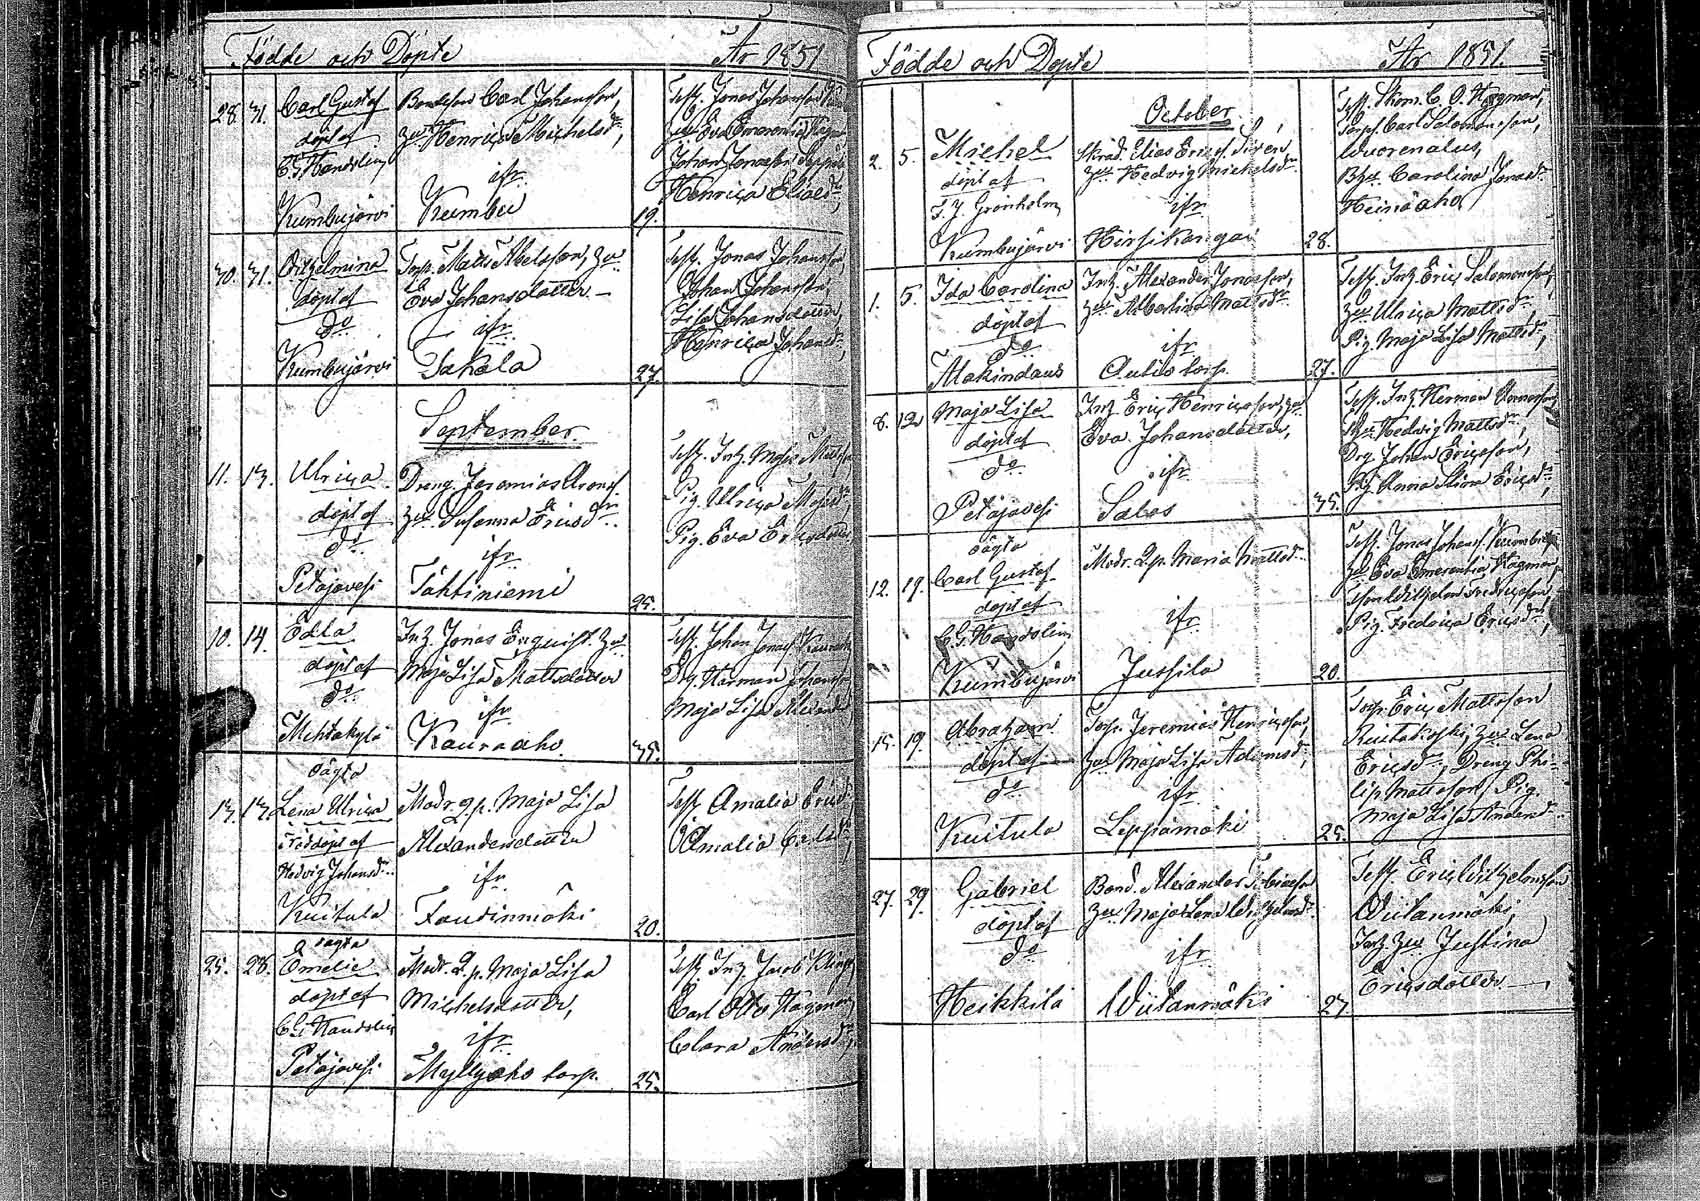 Födde och Döpte År 1851
28. 31. Carl Gustaf
döpt af
C. G. Handolin
Kumbujärvi
Bondeson Carl Johansson,
hu Henrica Michelsdr,
ifr
Kumbu
19.
Test. Jonas Johansson
Eva Emerentia
Johan Jonasson
Henrica Eliaedr,
30. 31. Wilhelmina
döpt af
do
Kumbujärvi
Torp. Matts Abelsson, hu
Eva Johansdotter
ifr
Sakala
27.
Test. Jonas Johansson,
Johan Johansson,
Lisa Johansdotter,
Henrica Johansdr,
September
11. 13. Ulrica
döpt af
do
Petäjävesi
Dreng Jeremias
hu Susanna Ericsdr
ifr
Tähtiniemi
25.
Test. Inh.
Pig. Ulrica
Pig. Eva Ericsdotter
10. 14. Edla
döpt af
do
Mihtakylä
Inh. Jonas Enquist hu
Maja Lisa Mattsdotter
ifr
Kauraaho.
35.
Test. Johan
Drg. Herman Johansson
Maja Lisa
13. 13. oägta
Lena Ulrica
nöddöpt af
Hedvig Johansdr
Kuitula
Modr. q.p. Maja Lisa
Alexandersdotter
ifr
20.
Test. Amalia Ericsdr
Amalia
25. 28. oägta
Emelie
döpt af
C. G. Handolin
Petäjävesi
Modr. Q.p. Maja Lisa
Michelsdotter,
ifr
Myllyaho torp.
25.
Test. Inh. Jacob
Carl Otto Hagman
Clara Andersdr,
Födde och Döpte År 1851.
October
2. 5. Michel
döpt af
F. J. Grönholm
Kumbujärvi
Skräd. Elias Ericss. Sirén
hu Hedvig Michelsdr
ifr
Hirsikangas
28.
Test. Skom. C. O. Hagman,
Torp. Carl Salomonsson,
Wuorenalus,
Bhu Carolina Jonasdr
Heinäaho,
1. 5. Ida Carolina
döpt af
do
Alakindaus
Inh. Alexander Jonasson,
hu Albertina Mattsdr
ifr
Autio torp.
27.
Test. Inh Eric Salomonsson,
hu Ulrica Mattsdr
Pig. Maja Lisa Mattsdr,
8. 12. Maja Lisa
döpt af
do
Petäjävesi
Inh Eric Henricsson, hu
Eva Johansdotter,
ifr
Salos
35.
Test. Inh Herman
hu Hedvig Mattsdr
Drg. Johan Ericsson,
Pig. Anna Stina Ericsdr,
12. 19. oägta
Carl Gustaf
döpt af
C. G. Handolin
Kumbujärvi
Modr. Q.p. Maria Mattsdr
ifr
Jussila
20.
Test. Jonas Johanss.
hu Eva Emerentia Hagman,
Wilhelm Fredricsson,
Pig. Fredrica Ericsdr,
15. 19. Abraham
döpt af
do
Kuitula
Torp. Jeremias Henricsson,
hu Maja Lisa Adamsdr,
ifr
Leppämäki
25.
Torp. Eric Mattsson
hu Lena
Ericsdr, Dreng Phi-
lip Mattsson, Pig.
Maja Lisa Andersdr
27. 29. Gabriel
döpt af
do
Heikkilä
Bond. Alexander
hu Maja Lena
ifr
Wiitanmäki
27.
Test. Eric Wilhelmsson
Wiitanmäki,
Inh hu Justina
Ericsdotter